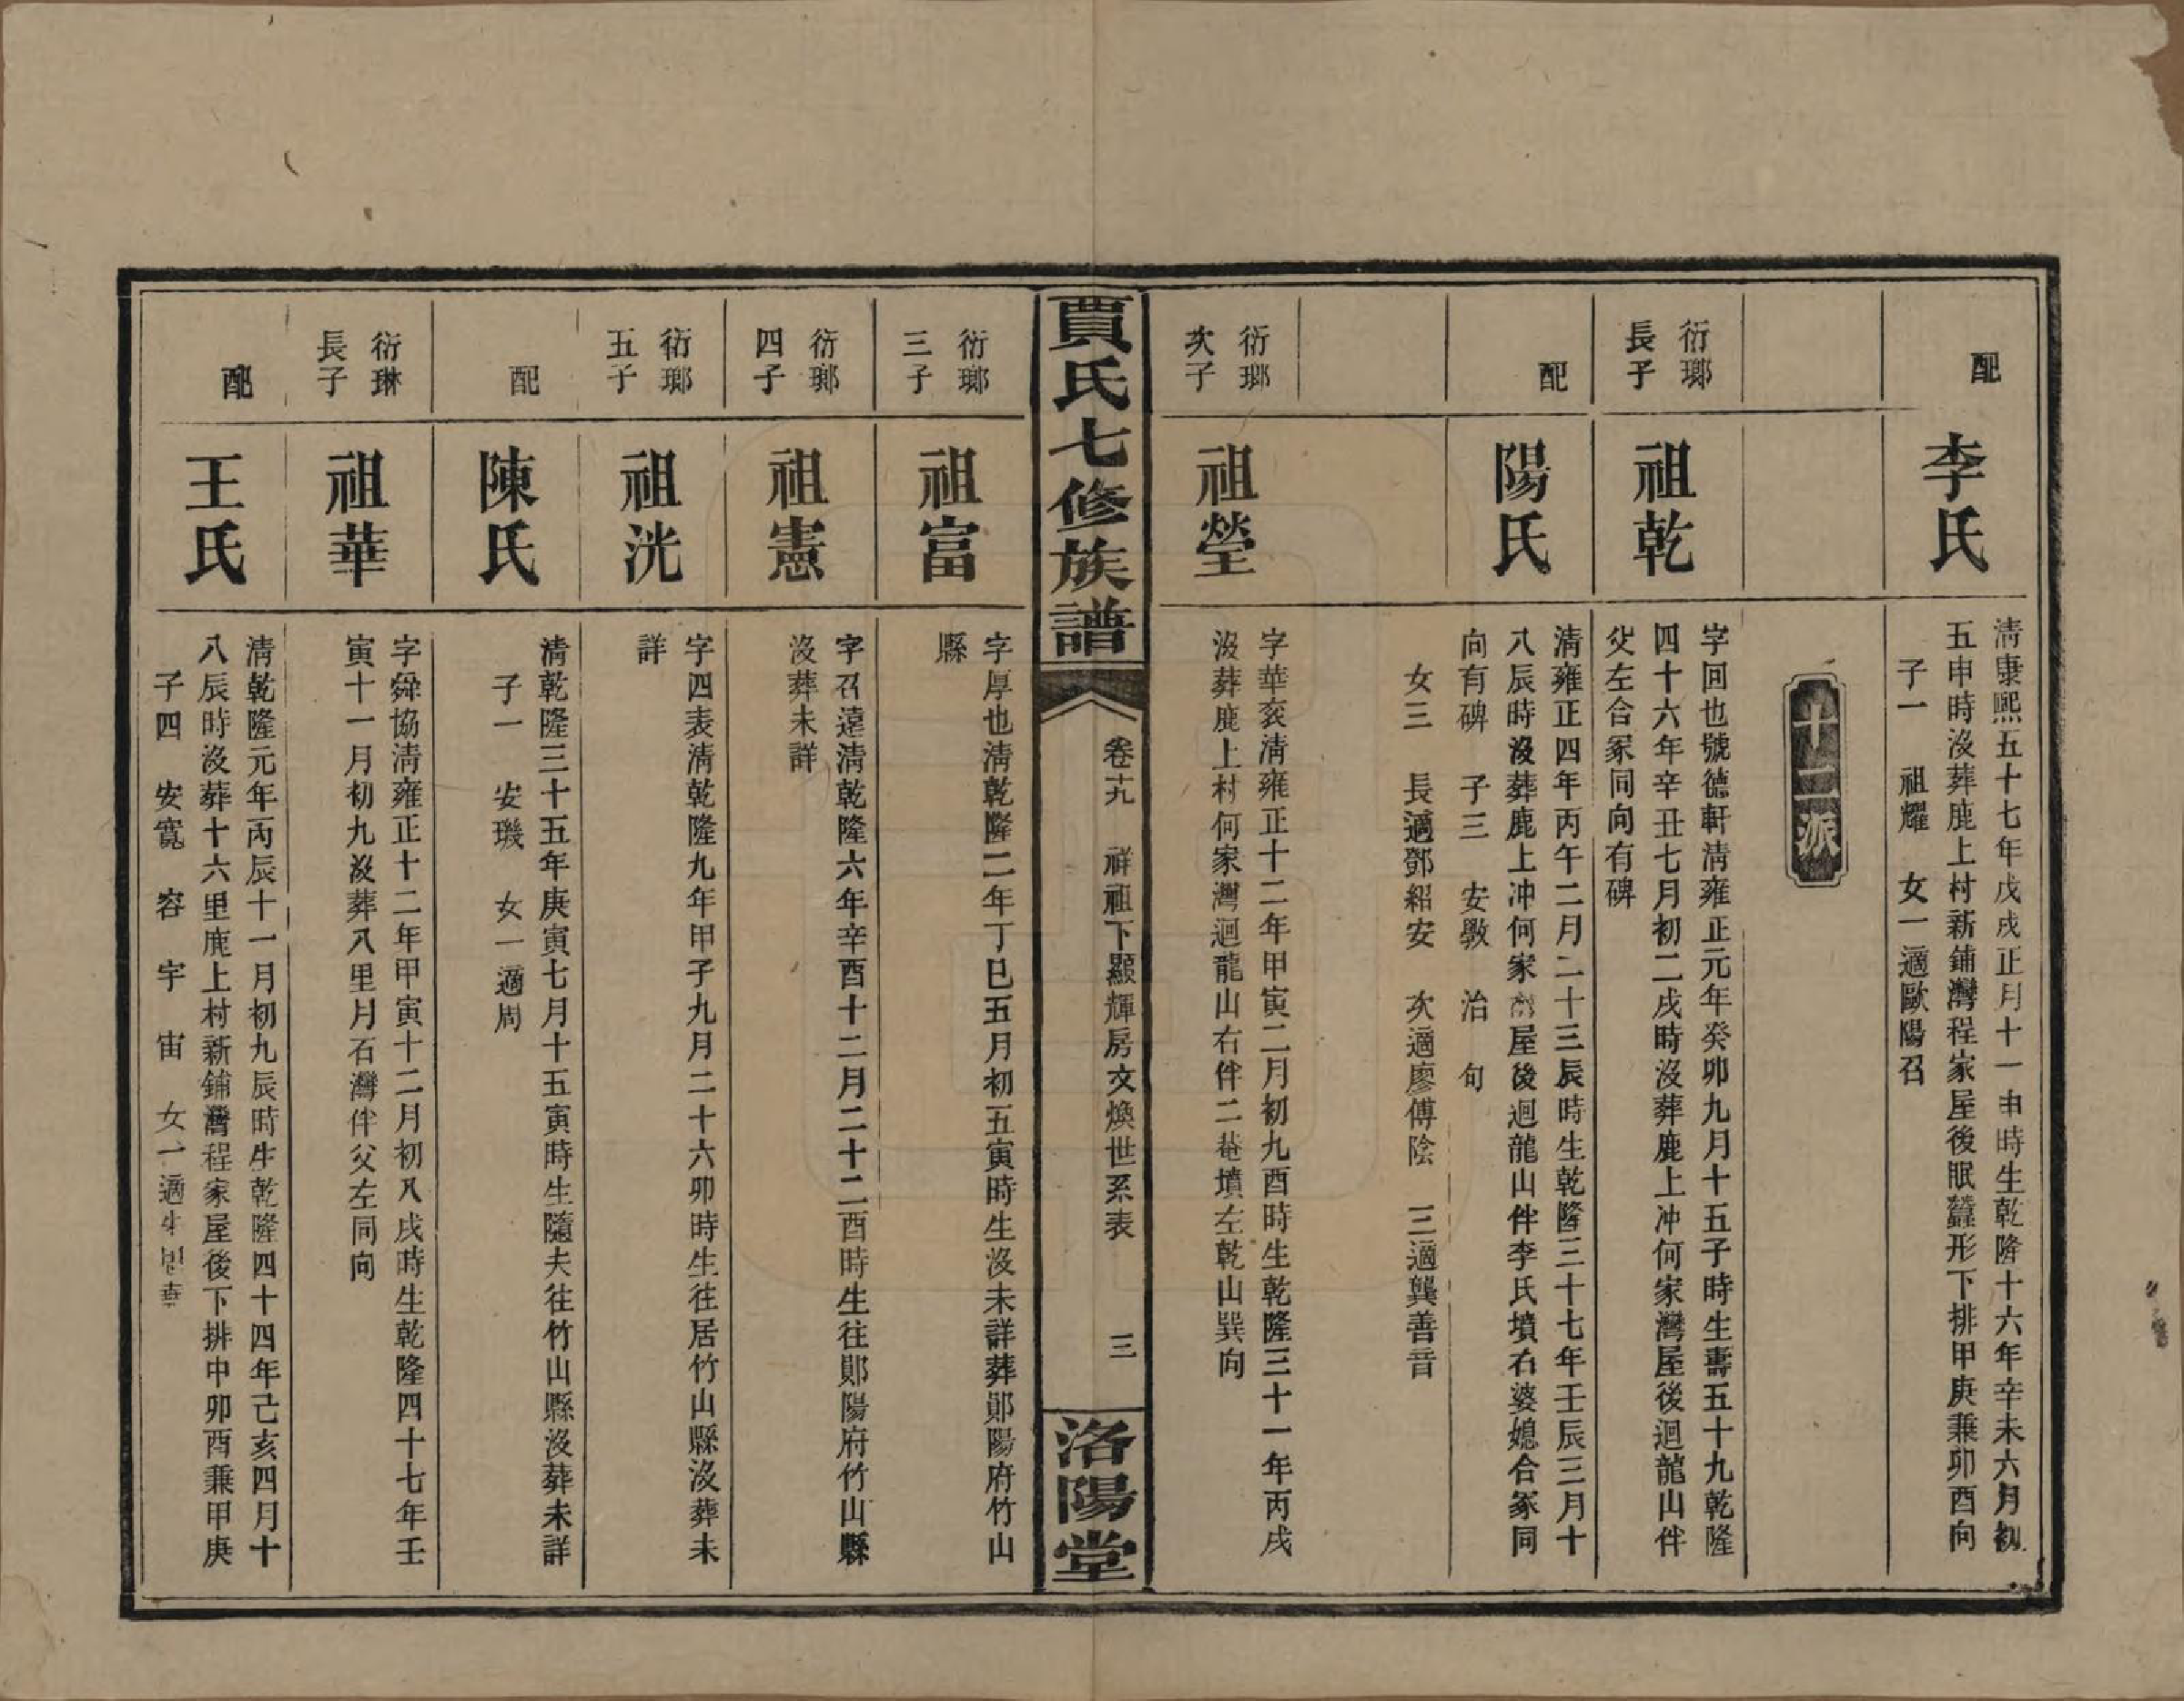 配
李氏
清康熙五十七年戊戌正月十一申時生乾隆十六年辛未六月初
五申時沒葬鹿上村新鋪灣程家屋後眠蠶形下排甲庚兼卯酉向
子一 祖耀 女一適歐陽召
十二派
衍瑯
長子
祖乾
字回也號德軒清雍正元年癸卯九月十五子時生壽五十九乾隆
四十六年辛丑七月初二戌時沒葬鹿上冲何家灣屋後迴龍山伴
父左合冢同向有碑
配
陽氏
清雍正四年丙午二月二十三辰時生乾隆三十七年壬辰三月十
八辰時沒葬鹿上冲何家灣屋後迴龍山伴李氏墳右婆媳合冢同
向有碑 子三 安斅 治 旬
女三 長適鄧紹安 次適廖傅陰 三適龔善音
衍瑯
次子
祖瑩
字華袞清雍正十二年甲寅二月初九酉時生乾隆三十一年丙戌
沒葬鹿上村何家灣迴龍山右伴二巷墳左乾山巽向
賈氏七修族譜
卷十九 祥祖下顯輝房文煥世系表 三
洛陽堂
衍瑯
三子
祖富
字厚也清乾隆二年丁巳五月初五寅時生沒未詳葬鄖陽府竹山
縣
衍瑯
四子
祖憲
字召遠清乾隆六年辛酉十二月二十二酉時生往鄖陽府竹山縣
沒葬未詳
衍瑯
五子
祖洸
字四表清乾隆九年甲子九月二十六卯時生往居竹山縣沒葬未
詳
配
陳氏
清乾隆三十五年庚寅七月十五寅時生隨夫往竹山縣沒葬未詳
子一 安璣 女一適周
衍琳
長子
祖華
字舜協清雍正十二年甲寅十二月初八戌時生乾隆四十七年壬
寅十一月初九沒葬八里月石灣伴父左同向
配
王氏
清乾隆元年丙辰十一月初九辰時生乾隆四十四年己亥四月十
八辰時沒葬十六里鹿上村新鋪灣程家屋後下排中卯酉兼甲庚
子四 安寬 容 宇 宙 女一適